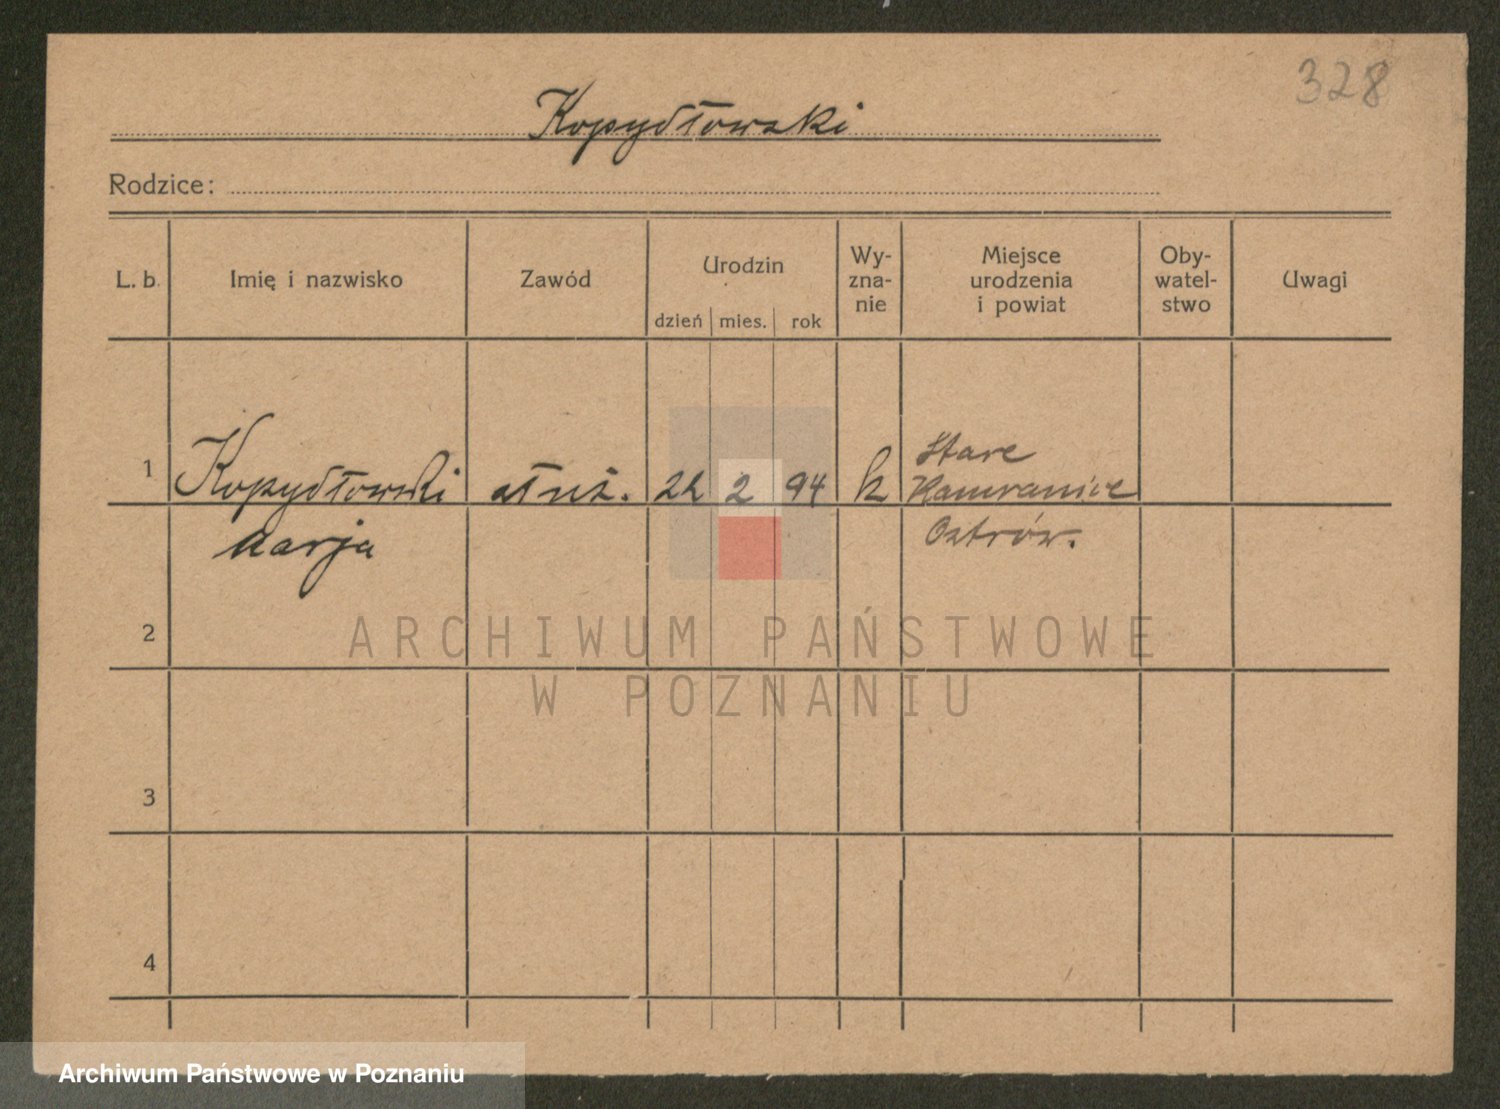 328
Kopydłowski
Rodzice:
L. b. Imię i nazwisko Zawód Urodzin Wy-zna-nie Miejsce urodzenia i powiat Oby-watel-stwo Uwagi
dzień mies. rok
1 Kopydłowski służ. 22 2 94 k Stare
Marja
Ostrów.
2
ARCHIWUM PAŃSTWOWE
W POZNANIU
3
4
Archiwum Państwowe w Poznaniu